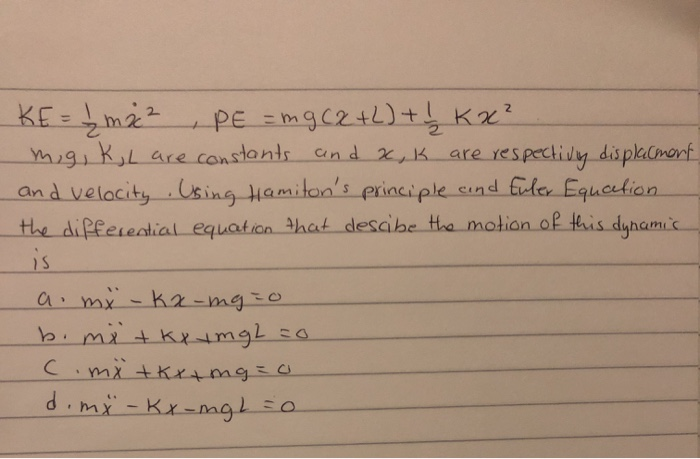 KE = 1/2 mẋ² , PE = mg(x+L) + 1/2 Kx²
m,g, K,L are constants and x, ẋ are respectivly displacmont
and velocity. Using Hamilton's principle and Euler Equation
the differential equation that descibe the motion of this dynamic
is
a. mẍ - Kx - mg = 0
b. mẍ + Kx + mgL = 0
C. mẍ + Kx + mg = 0
d. mẍ - Kx - mgL = 0